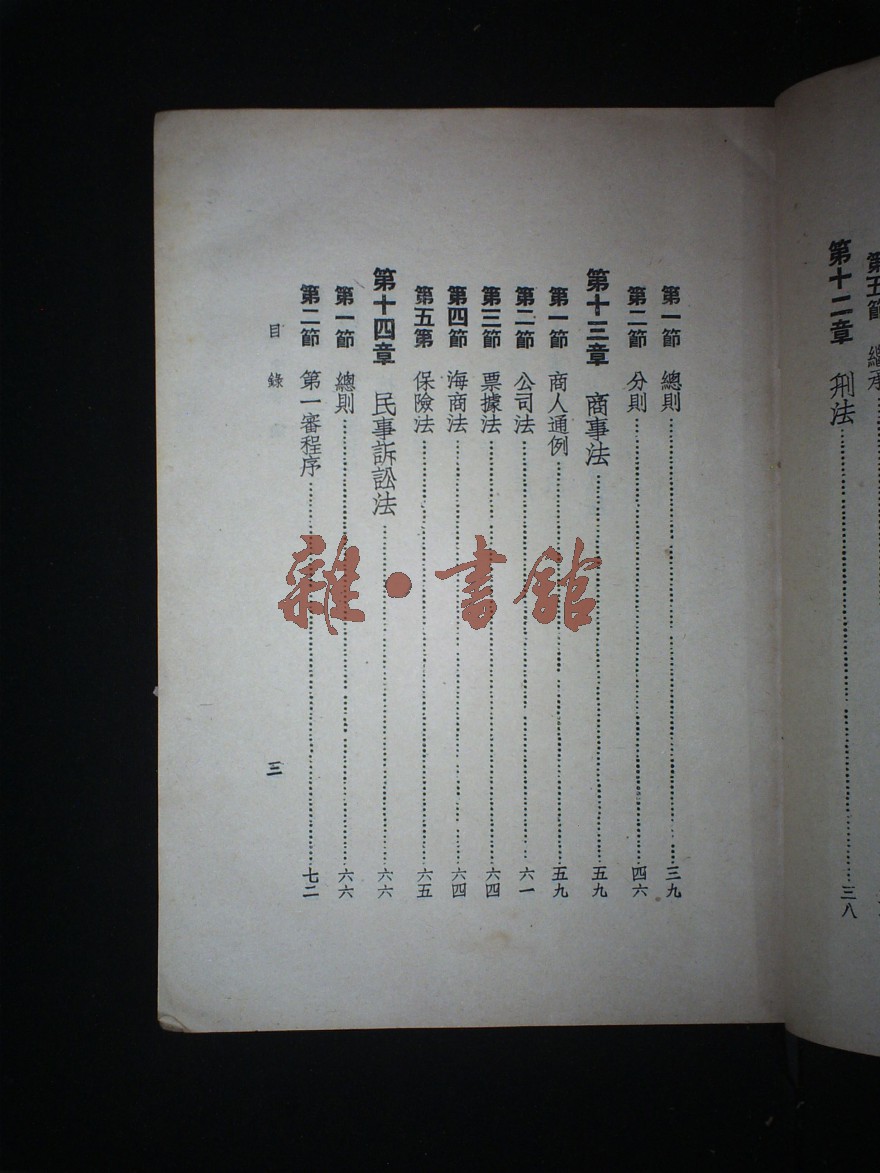 第五節　繼承
第十二章　刑法……三八
第一節　總則……三九
第二節　分則……四六
第十三章　商事法……五九
第一節　商人通例……五九
第二節　公司法……六一
第三節　票據法……六四
第四節　海商法……六四
第五第　保險法……六五
第十四章　民事訴訟法……六六
第一節　總則……六六
第二節　第一審程序……七二
目錄
三
雜·書館